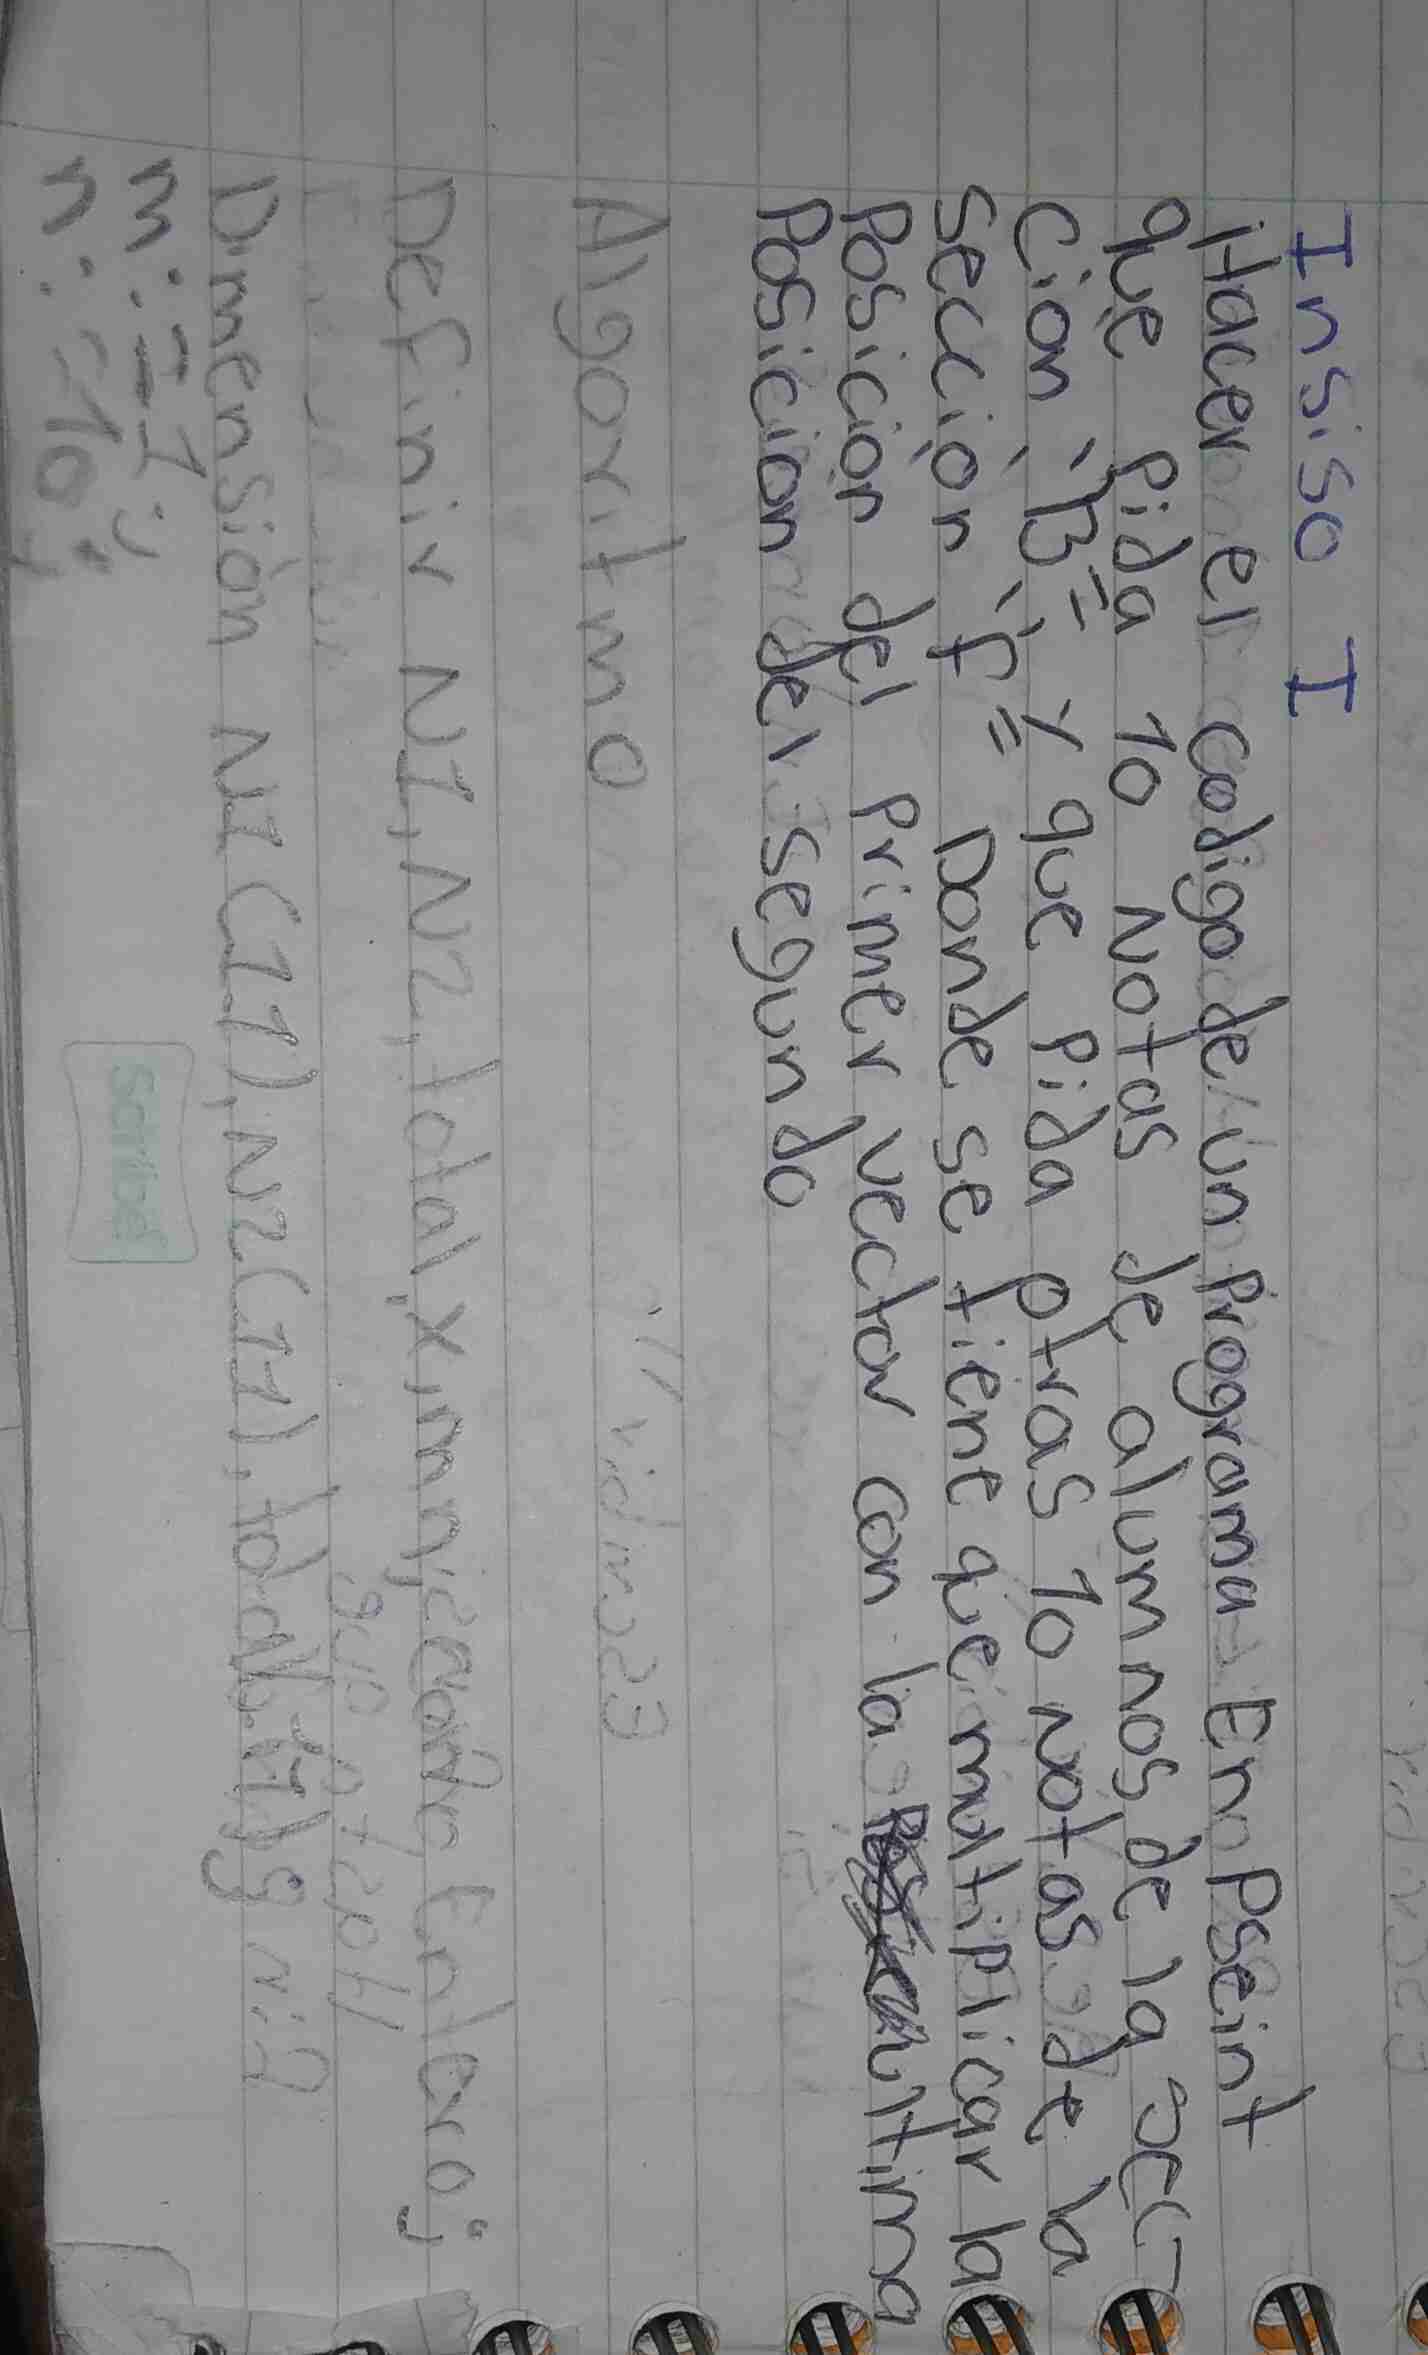 Insiso I
Hacer el codigo de un Programa En Pseint
que Pida 10 Notas de alumnos de la secc-
cion "B" y que Pida otras 10 notas de la
seccion "f" Donde se tiene que multiplicar la
Posicion del Primer vector con la ultima
Posicion del segundo
Algoritmo
Definir N1, N2, total, x, m, n, como Entero;
Dimensión N1(11), N2(11), total(11);
m:=1;
n:=10;
Scribe